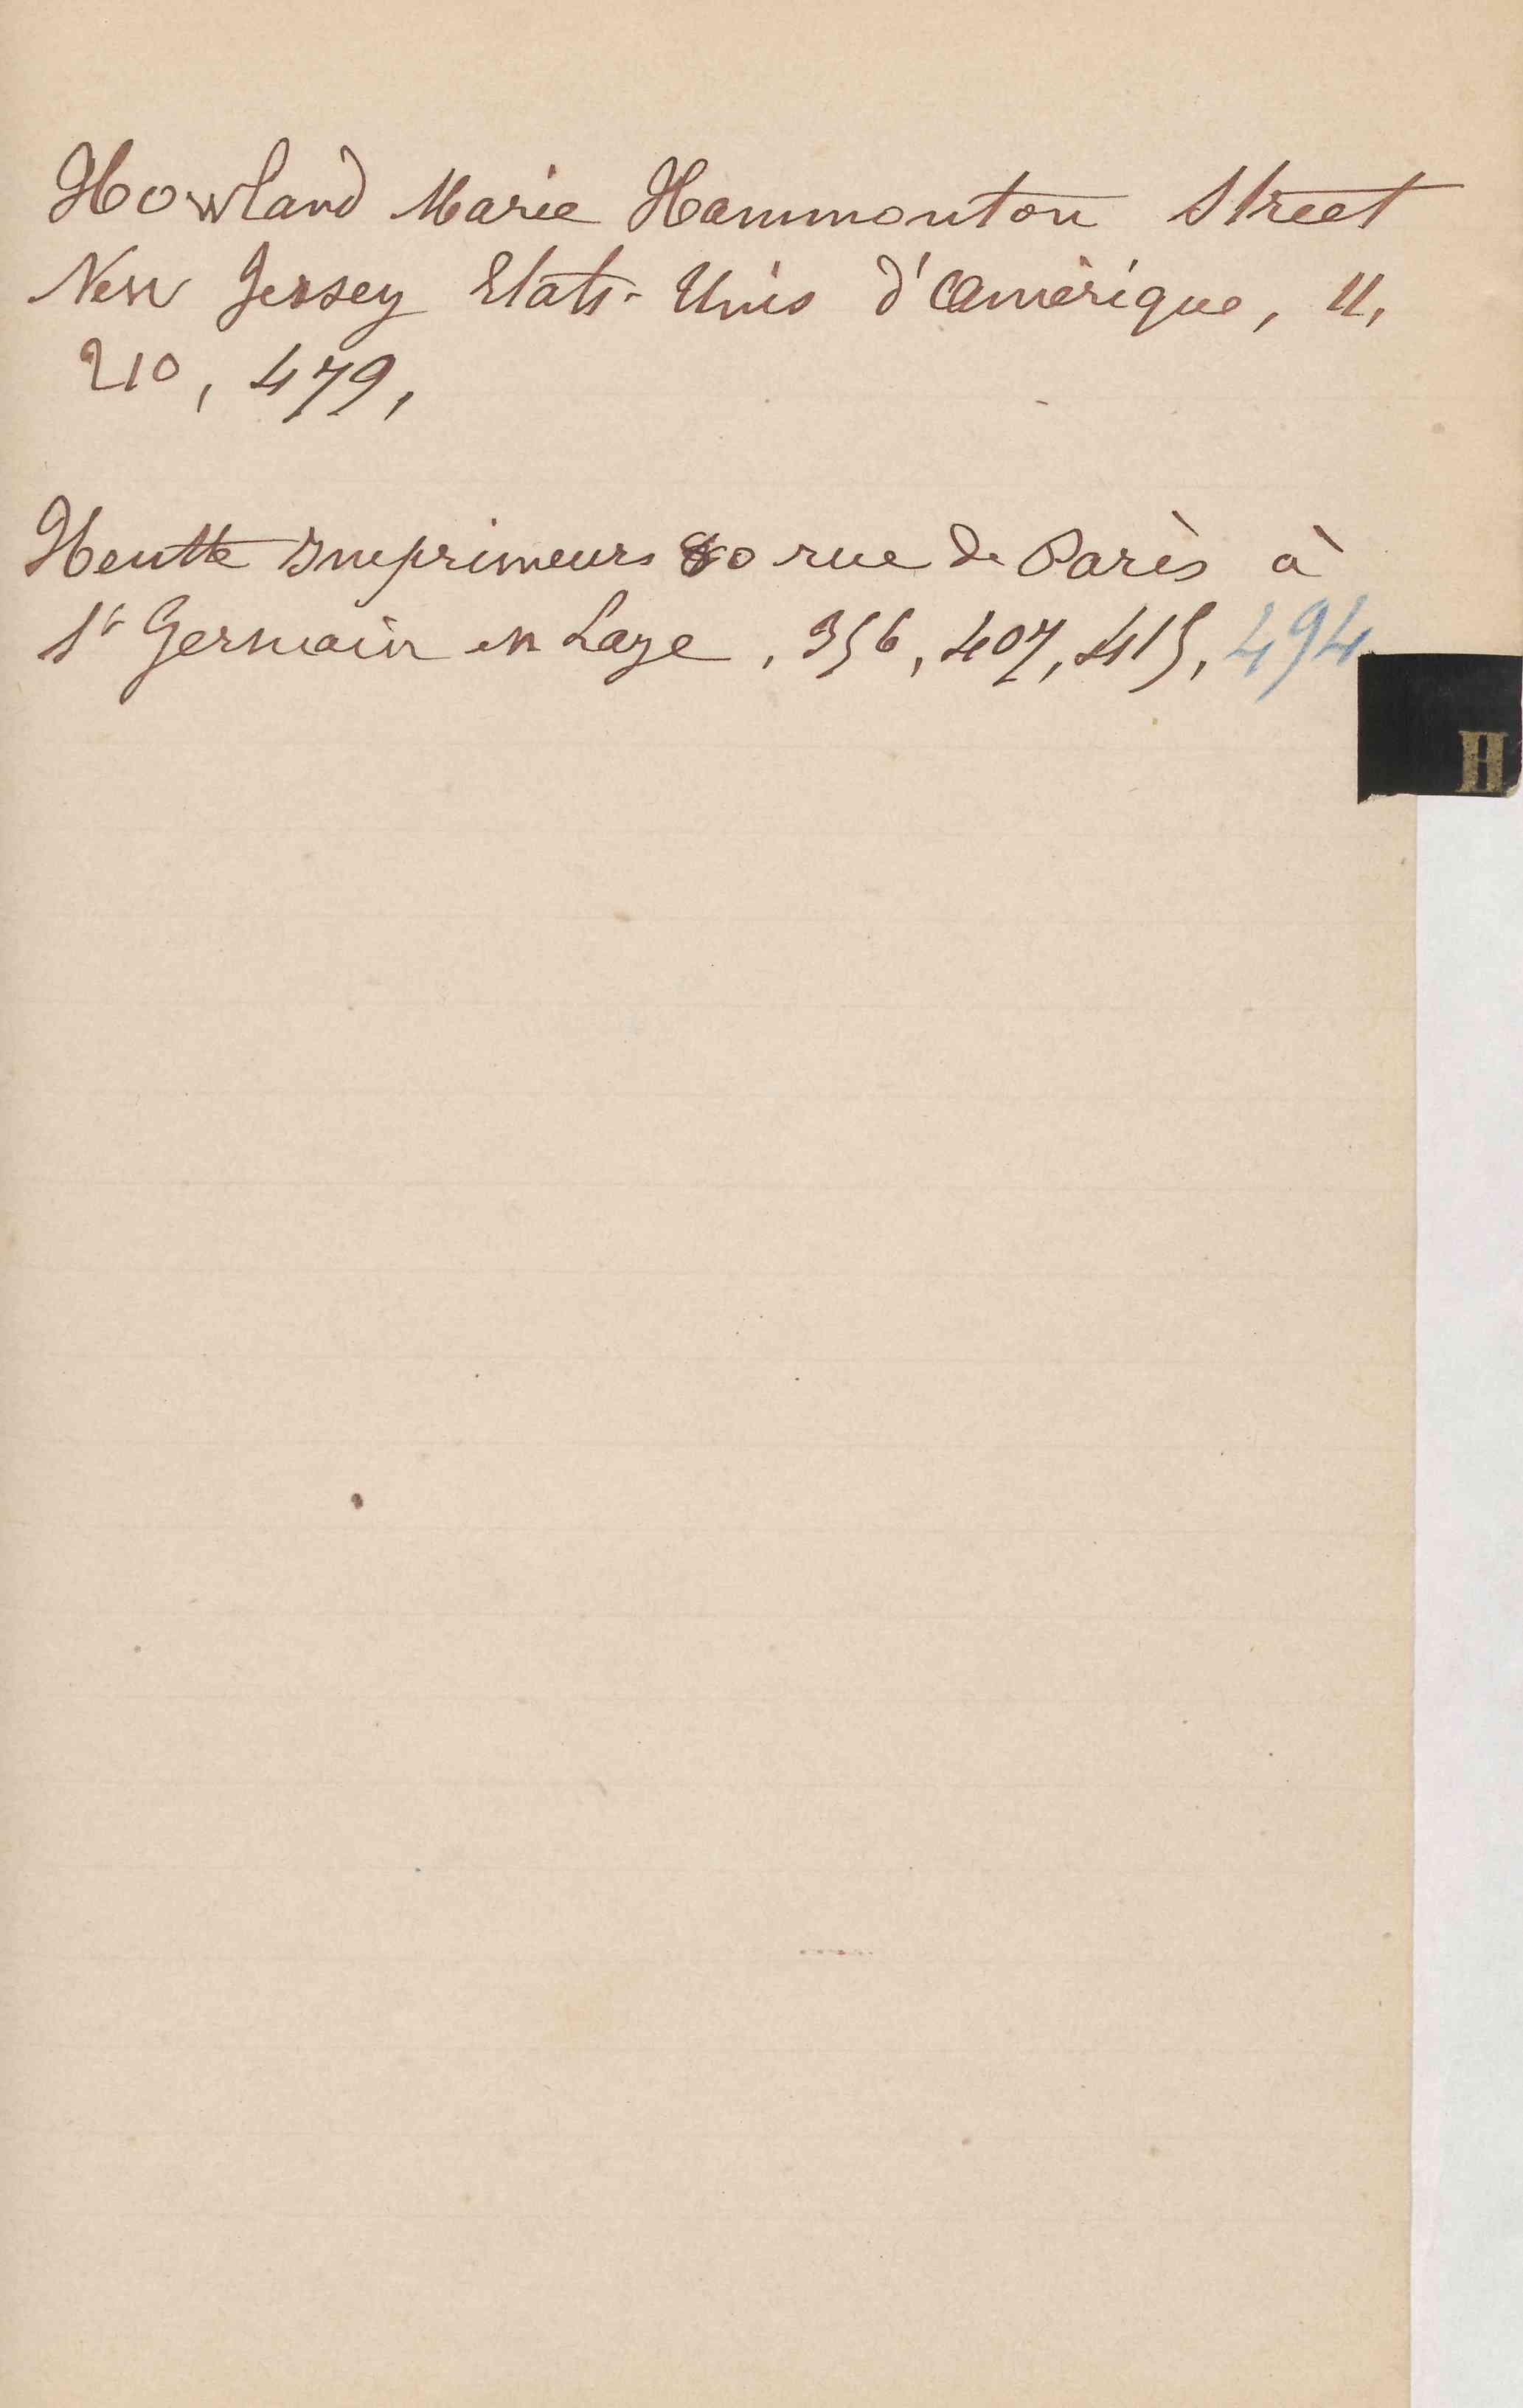 Howland Marie Hammonton Street
New Jersey Etats-Unis d'Amérique, 11,
210, 479,
Heutte Imprimeurs 80 rue de Paris à
St Germain en Laye, 356, 407, 415, 494
H